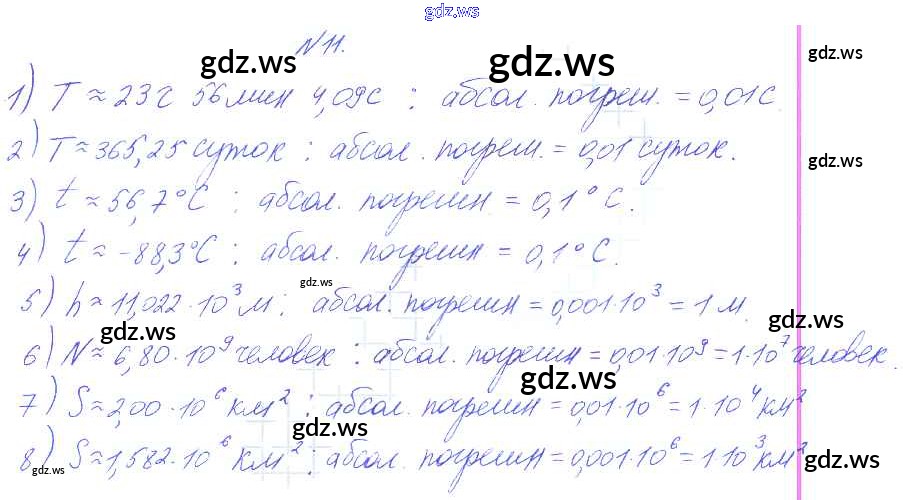 gdz.ws
N 11.
gdz.ws gdz.ws gdz.ws
1) T ≈ 23 г 56 мин 4,09 с ; абсол. погреш. = 0,01 с.
gdz.ws
2) T ≈ 365,25 суток ; абсол. погреш. = 0,01 суток.
gdz.ws
3) t ≈ 56,7°C ; абсол. погрешн = 0,1° C.
4) t ≈ -88,3°C ; абсол. погрешн = 0,1° C.
gdz.ws
5) h ≈ 11,022 · 10³ м ; абсол. погрешн = 0,001·10³ = 1 м.
gdz.ws gdz.ws
6) N ≈ 6,80 · 10⁹ человек ; абсол. погрешн = 0,01·10⁹ = 1·10⁷ человек.
gdz.ws gdz.ws
7) S ≈ 2,00 · 10⁶ км² ; абсол. погрешн = 0,01·10⁶ = 1·10⁴ км²
gdz.ws
8) S ≈ 1,582·10⁶ км² ; абсол. погрешн = 0,001·10⁶ = 1·10³ км²
gdz.ws gdz.ws